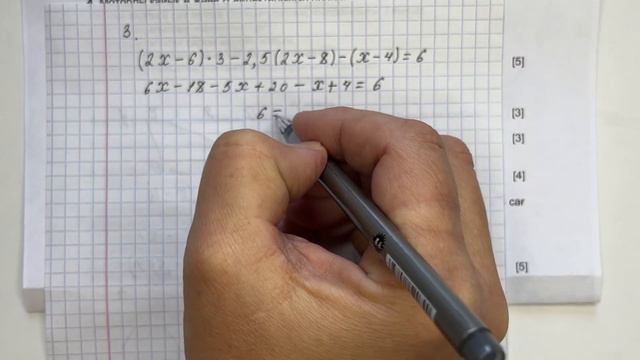 3.
(2x-6)·3-2,5(2x-8)-(x-4)=6
[5]
6x-18-5x+20-x+4=6
6=
[3]
[3]
[4]
car
[5]